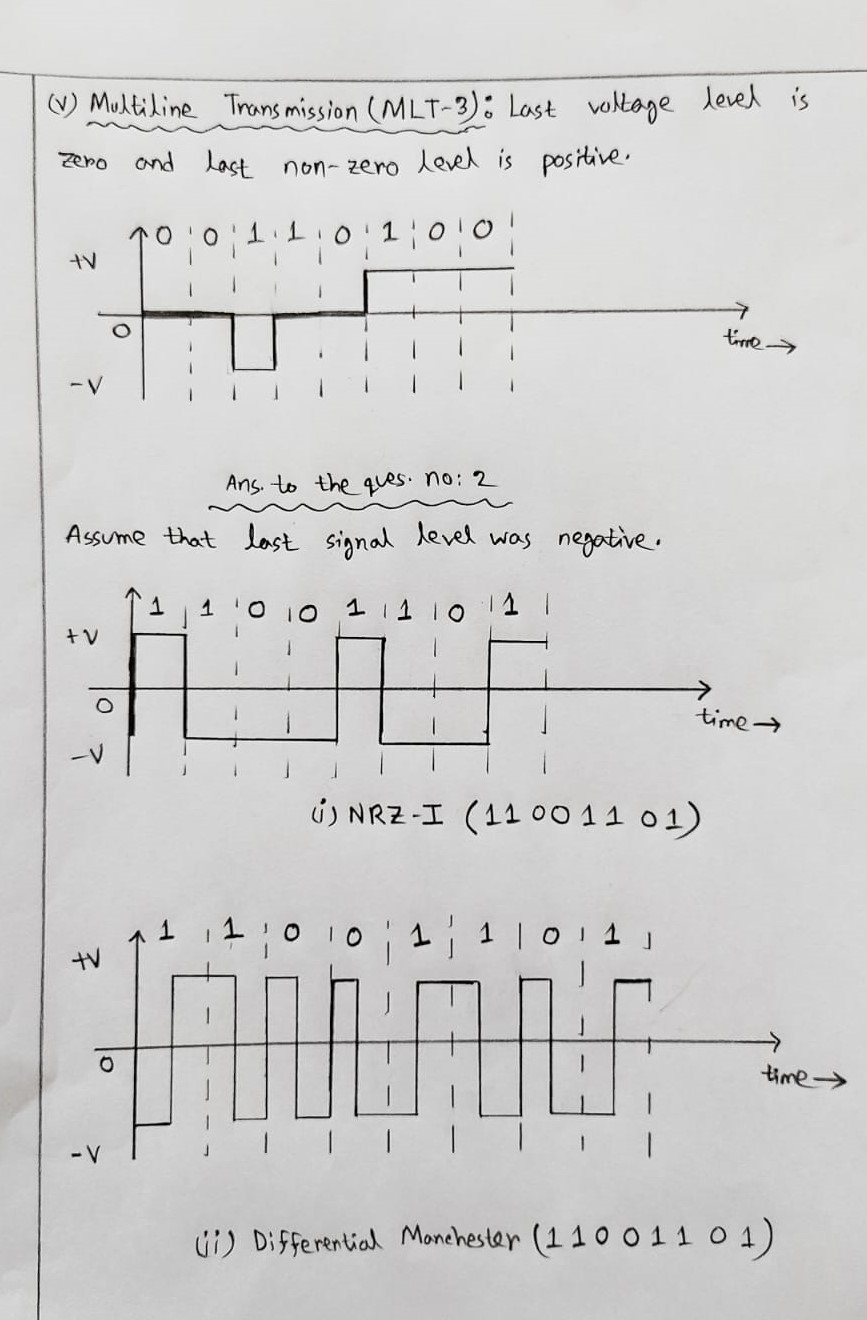 (v) Multiline Transmission (MLT-3): Last voltage level is
zero and last non-zero level is positive.
0 0 1 1 0 1 0 0
+V
0
time →
-V
Ans. to the ques. no: 2
Assume that last signal level was negative.
1 1 0 0 1 1 0 1
+V
0
time →
-V
(i) NRZ-I (11001101)
1 1 0 0 1 1 0 1
+V
0
time →
-V
(ii) Differential Manchester (11001101)